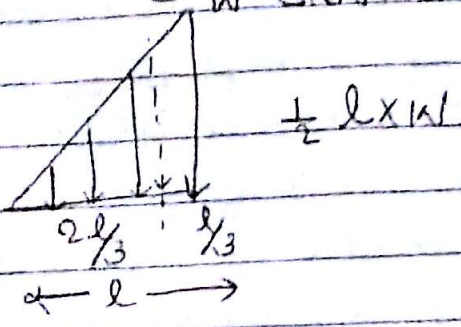 ½ l × w
2l/3 l/3
l